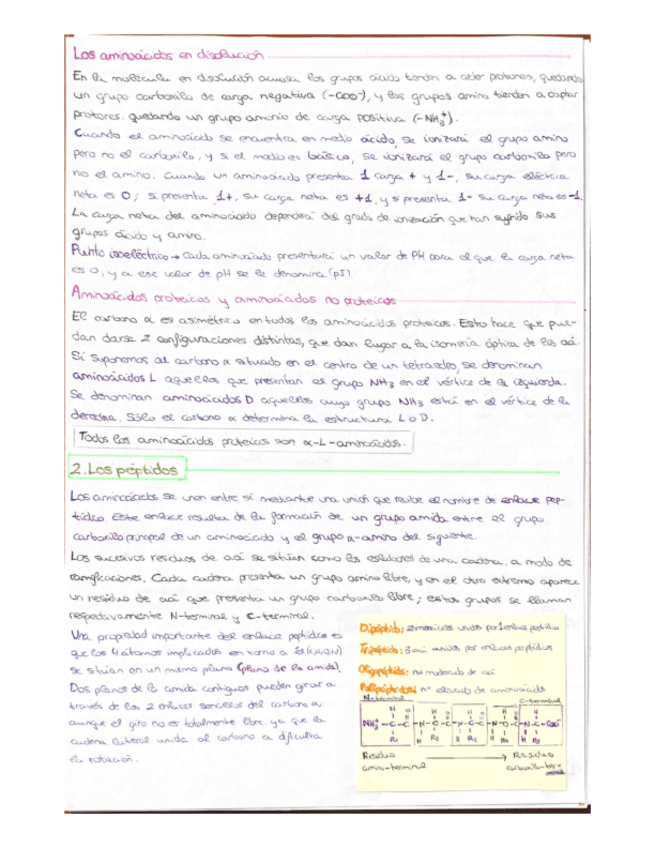 Los aminoácidos en disolución
En la molécula en disolución acuosa los grupos ácido tienden a ceder protones, quedando
un grupo carboxilo de carga negativa (-COO⁻), y los grupos amino tienden a captar
protones, quedando un grupo amonio de carga positiva (-NH₃⁺).
Cuando el aminoácido se encuentra en medio ácido, se ionizará el grupo amino
pero no el carboxilo, y si el medio es básico, se ionizará el grupo carboxilo pero
no el amino. Cuando un aminoácido presenta 1 carga + y 1-, su carga eléctrica
neta es 0; si presenta 1+, su carga neta es +1, y si presenta 1- su carga neta es -1.
La carga neta del aminoácido dependerá del grado de ionización que han sufrido sus
grupos ácido y amino.
Punto isoeléctrico → Cada aminoácido presentará un valor de PH para el que la carga neta
es 0, y a ese valor de pH se le denomina (pI).
Aminoácidos proteicos y aminoácidos no proteicos
El carbono α es asimétrico en todos los aminoácidos proteicos. Esto hace que pue-
dan darse 2 configuraciones distintas, que dan lugar a la isomería óptica de los aá.
Si suponemos al carbono α situado en el centro de un tetraedro, se denominan
aminoácidos L aquellos que presentan el grupo NH₃ en el vértice de la izquierda.
Se denominan aminoácidos D aquellos cuyo grupo NH₃ está en el vértice de la
derecha. Sólo el carbono α determina la estructura L o D.
Todos los aminoácidos proteicos son α-L-aminoácidos.
2. Los péptidos
Los aminoácidos se unen entre sí mediante una unión que recibe el nombre de enlace pep-
tídico. Este enlace resulta de la formación de un grupo amida entre el grupo
carboxilo principal de un aminoácido y el grupo α-amino del siguiente.
Los sucesivos residuos de aá se sitúan como los eslabones de una cadena, a modo de
ramificaciones. Cada cadena presenta un grupo amino libre, y en el otro extremo aparece
un residuo de aá que presenta un grupo carboxilo libre; estos grupos se llaman
respectivamente N-terminal y C-terminal.
Una propiedad importante del enlace peptídico es
que los 4 átomos implicados en torno a
se sitúan en un mismo plano (plano de la amida).
Dos planos de la amida contiguos pueden girar a
través de los 2 enlaces sencillos del carbono α,
aunque el giro no es totalmente libre, ya que la
cadena lateral unida al carbono α dificulta
la rotación.
Dipéptido: 2 aminoácidos unidos por 1 enlace peptídico
Tripéptido: 3 aá unidos por enlaces peptídicos
Oligopéptido: nº moderado de aá
Polipéptidos: nº elevado de aminoácidos
N-terminal C-terminal
H O H H O H
NH₃⁺-C-C-N-C-C-N-C-C-N-C-C-N-C-COO⁻
H R₁ H R₂ H R₃ H R₄ H R₅
Residuo → Residuo
amino-terminal carboxilo-ter-
minal